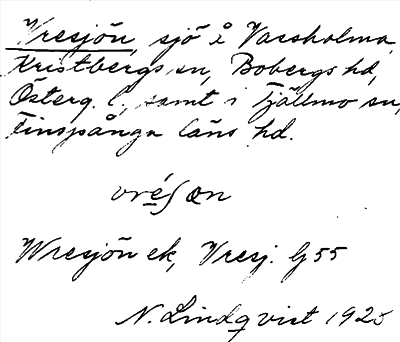 Vresjön, sjö i Vassholma,
Kristbergs sn, Bobergs hd,
Österg. l., samt i Tjällmo sn,
Finspånga läns hd.
vréʃøn
Wresjön ek, Vresj. G 55
N. Lindqvist 1925